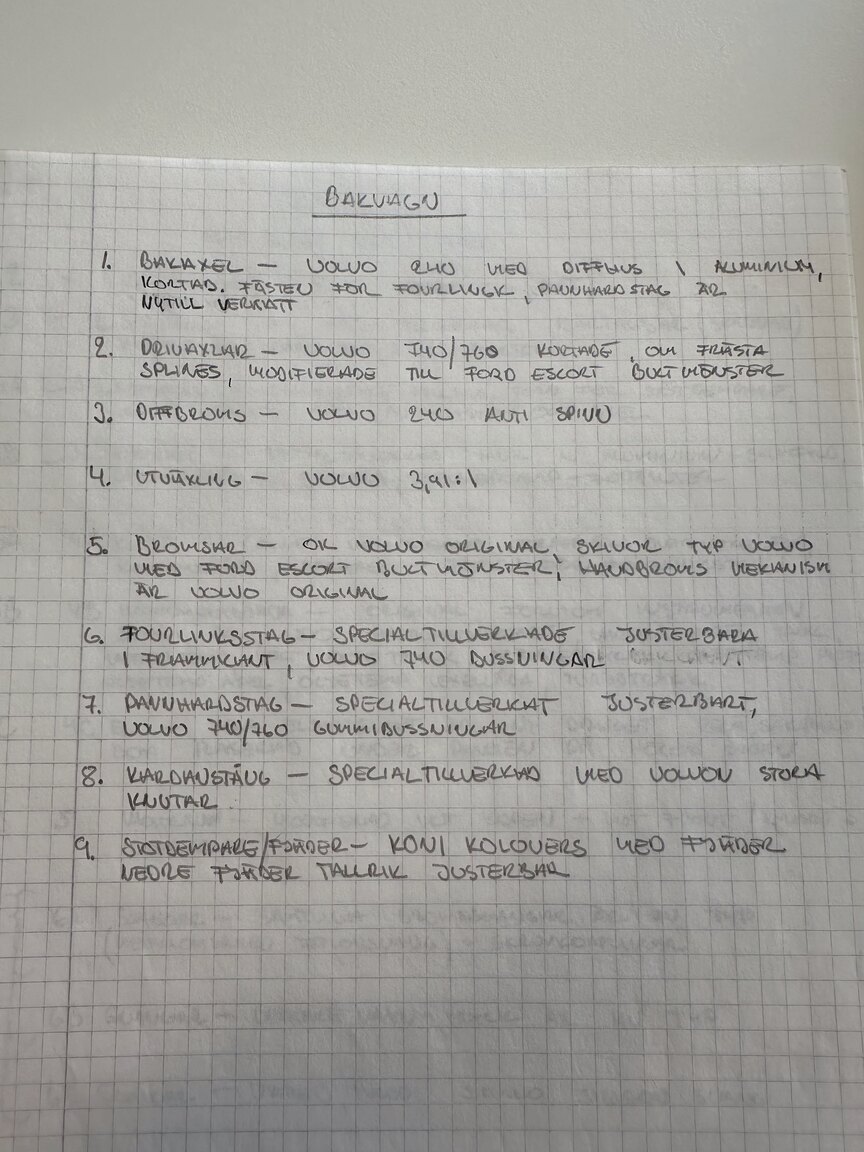 BAKVAGN
1. BAKAXEL – VOLVO 240 MED DIFFHUS I ALUMINIUM,
KORTAD. FÄSTEN FÖR FOURLINGK, PANNHARDSTAG ÄR
NYTILLVERKATT
2. DRIVAXLAR – VOLVO 740/760 KORTADE, OM FRÄSTA
SPLINES, MODIFIERADE TILL FORD ESCORT BULTMÖNSTER
3. DIFFBROMS – VOLVO 240 ANTI SPINN
4. UTVÄXLING – VOLVO 3,91:1
5. BROMSAR – OK VOLVO ORIGINAL, SKIVOR TYP VOLVO
MED FORD ESCORT BULTMÖNSTER, HANDBROMS MEKANISM
ÄR VOLVO ORIGINAL
6. FOURLINKSSTAG – SPECIALTILLVERKADE JUSTERBARA
I FRAMKANT, VOLVO 740 BUSSNINGAR
7. PANNHARDSTAG – SPECIALTILLVERKAT JUSTERBART,
VOLVO 740/760 GUMMIBUSSNINGAR
8. KARDANSTÅNG – SPECIALTILLVERKAD MED VOLVON STORA
KNUTAR.
9. STÖTDEMPARE/FJÄDER – KONI KOLOVERS MED FJÄDER
NEDRE FJÄDER TALLRIK JUSTERBAR